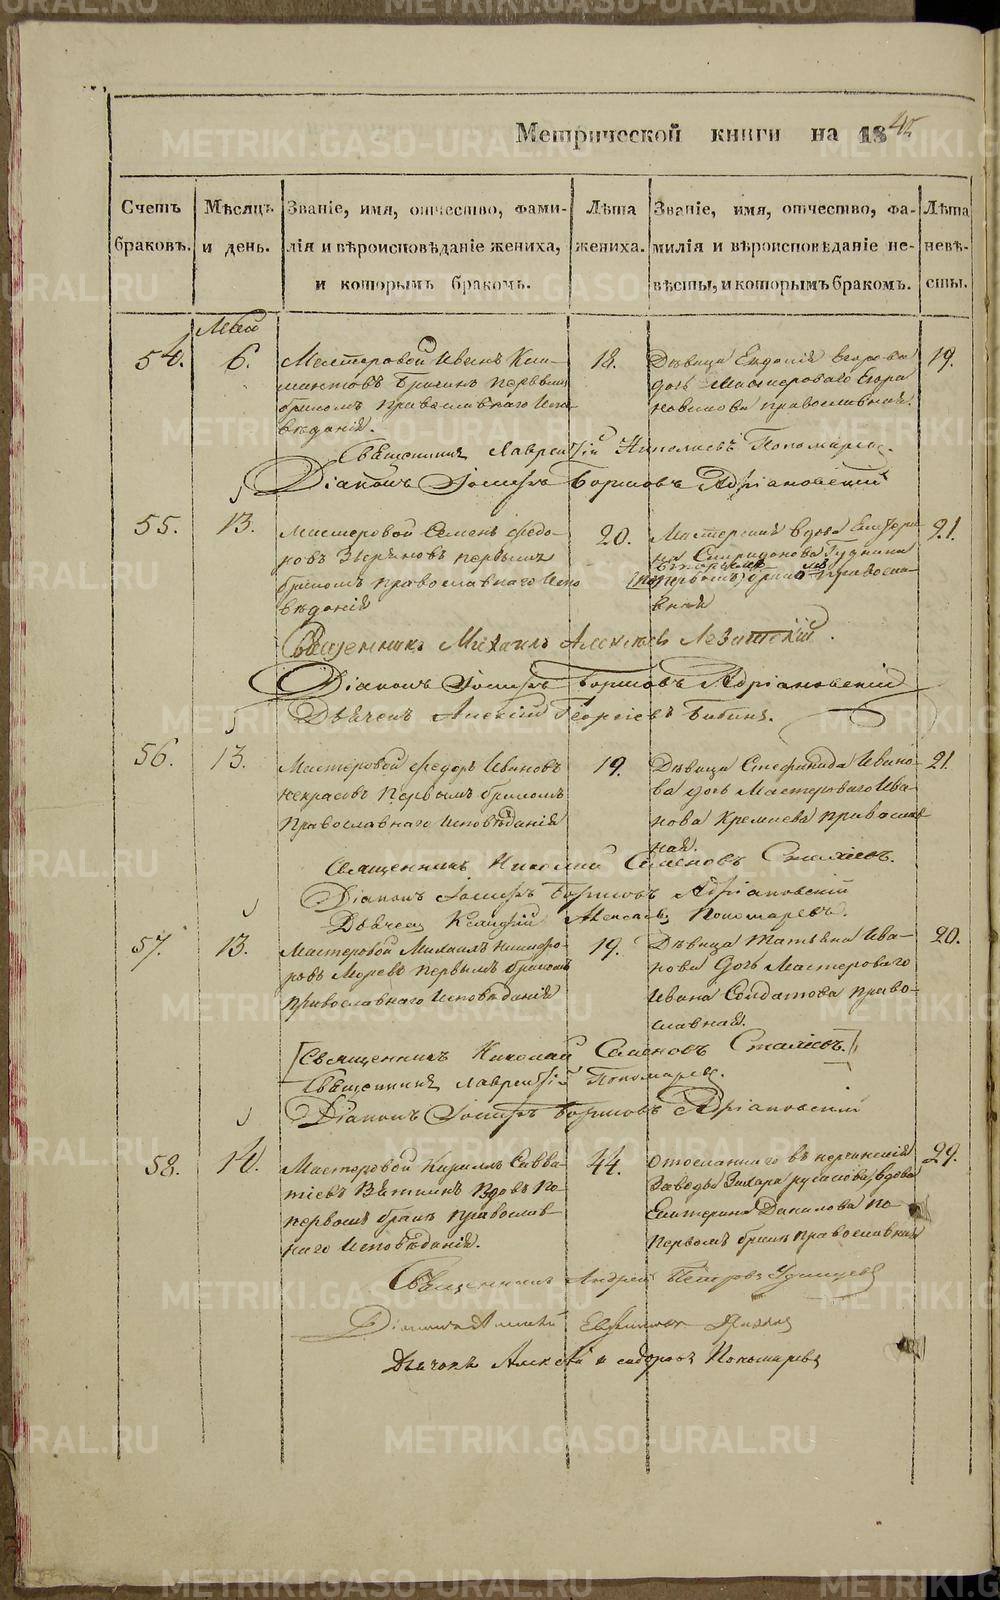 Метрической книги на 1842
Счетъ браковъ.
Мѣсяцъ и день.
Званіе, имя, отчество, фами-
лія и вѣроисповѣданіе жениха,
и которымъ бракомъ.
Лѣта жениха.
Званіе, имя, отчество, фа-
милія и вѣроисповѣданіе не-
вѣсты, и которымъ бракомъ.
Лѣта невѣ-
сты.
Май
54. 6.
Мастеровой Иванъ Кли-
ментовъ первымъ
бракомъ православнаго испо-
вѣданія.
18.
Дѣвица Евдокія Егорова
дочь Мастероваго Егора
православная.
19.
Священникъ Лаврентій Николаевъ Пономаревъ.
Діаконъ Іосифъ Борисовъ Адріановскій
55. 13.
Мастеровой Семенъ Федо-
ровъ первымъ
бракомъ православнаго испо
вѣданія
20.
Мастерская вдова Екатери-
на Спиридонова Гудкина
вторымъ
первымъ бракомъ православ-
ная
21.
Священникъ Михаилъ Алексѣевъ
Діаконъ Іосифъ Борисовъ Адріановскій
Дьячекъ Алексій Георгіевъ Бабинъ.
56. 13.
Мастеровой Федоръ Ивановъ
Некрасовъ Первымъ бракомъ
Православнаго Исповѣданія
19.
Дѣвица Стефанида Ивано-
ва дочь Мастероваго Ива
нова Кремнева православ
ная.
21.
Священникъ Николай Семеновъ
Діаконъ Іосифъ Борисовъ Адріановскій
Дьячекъ Пономаревъ.
57. 13.
Мастеровой Михаилъ Никифо-
ровъ первымъ бракомъ
православнаго Исповѣданія
19.
Дѣвица Татьяна Ива-
нова Дочь Мастероваго
Ивана Солдатова право-
славная.
20.
[Священникъ Николай Семеновъ ]
Священникъ Лаврентій Пономаревъ.
Діаконъ Іосифъ Борисовъ Адріановскій
58. 14.
Мастеровой Кирилъ Савва-
тіевъ Вяткинъ Вдовъ По
первомъ бракѣ православ-
наго Исповѣданія.
44.
Отосланнаго въ нерчинскія
заводы Захара Русанова вдова
Екатерина Данилова по
первомъ бракѣ православная
29.
Священникъ Андрей Петровъ Удинцевъ
Діаконъ Алексій
Дьячокъ Алексѣй Сидоровъ Пономаревъ
METRIKI.GASO-URAL.RU